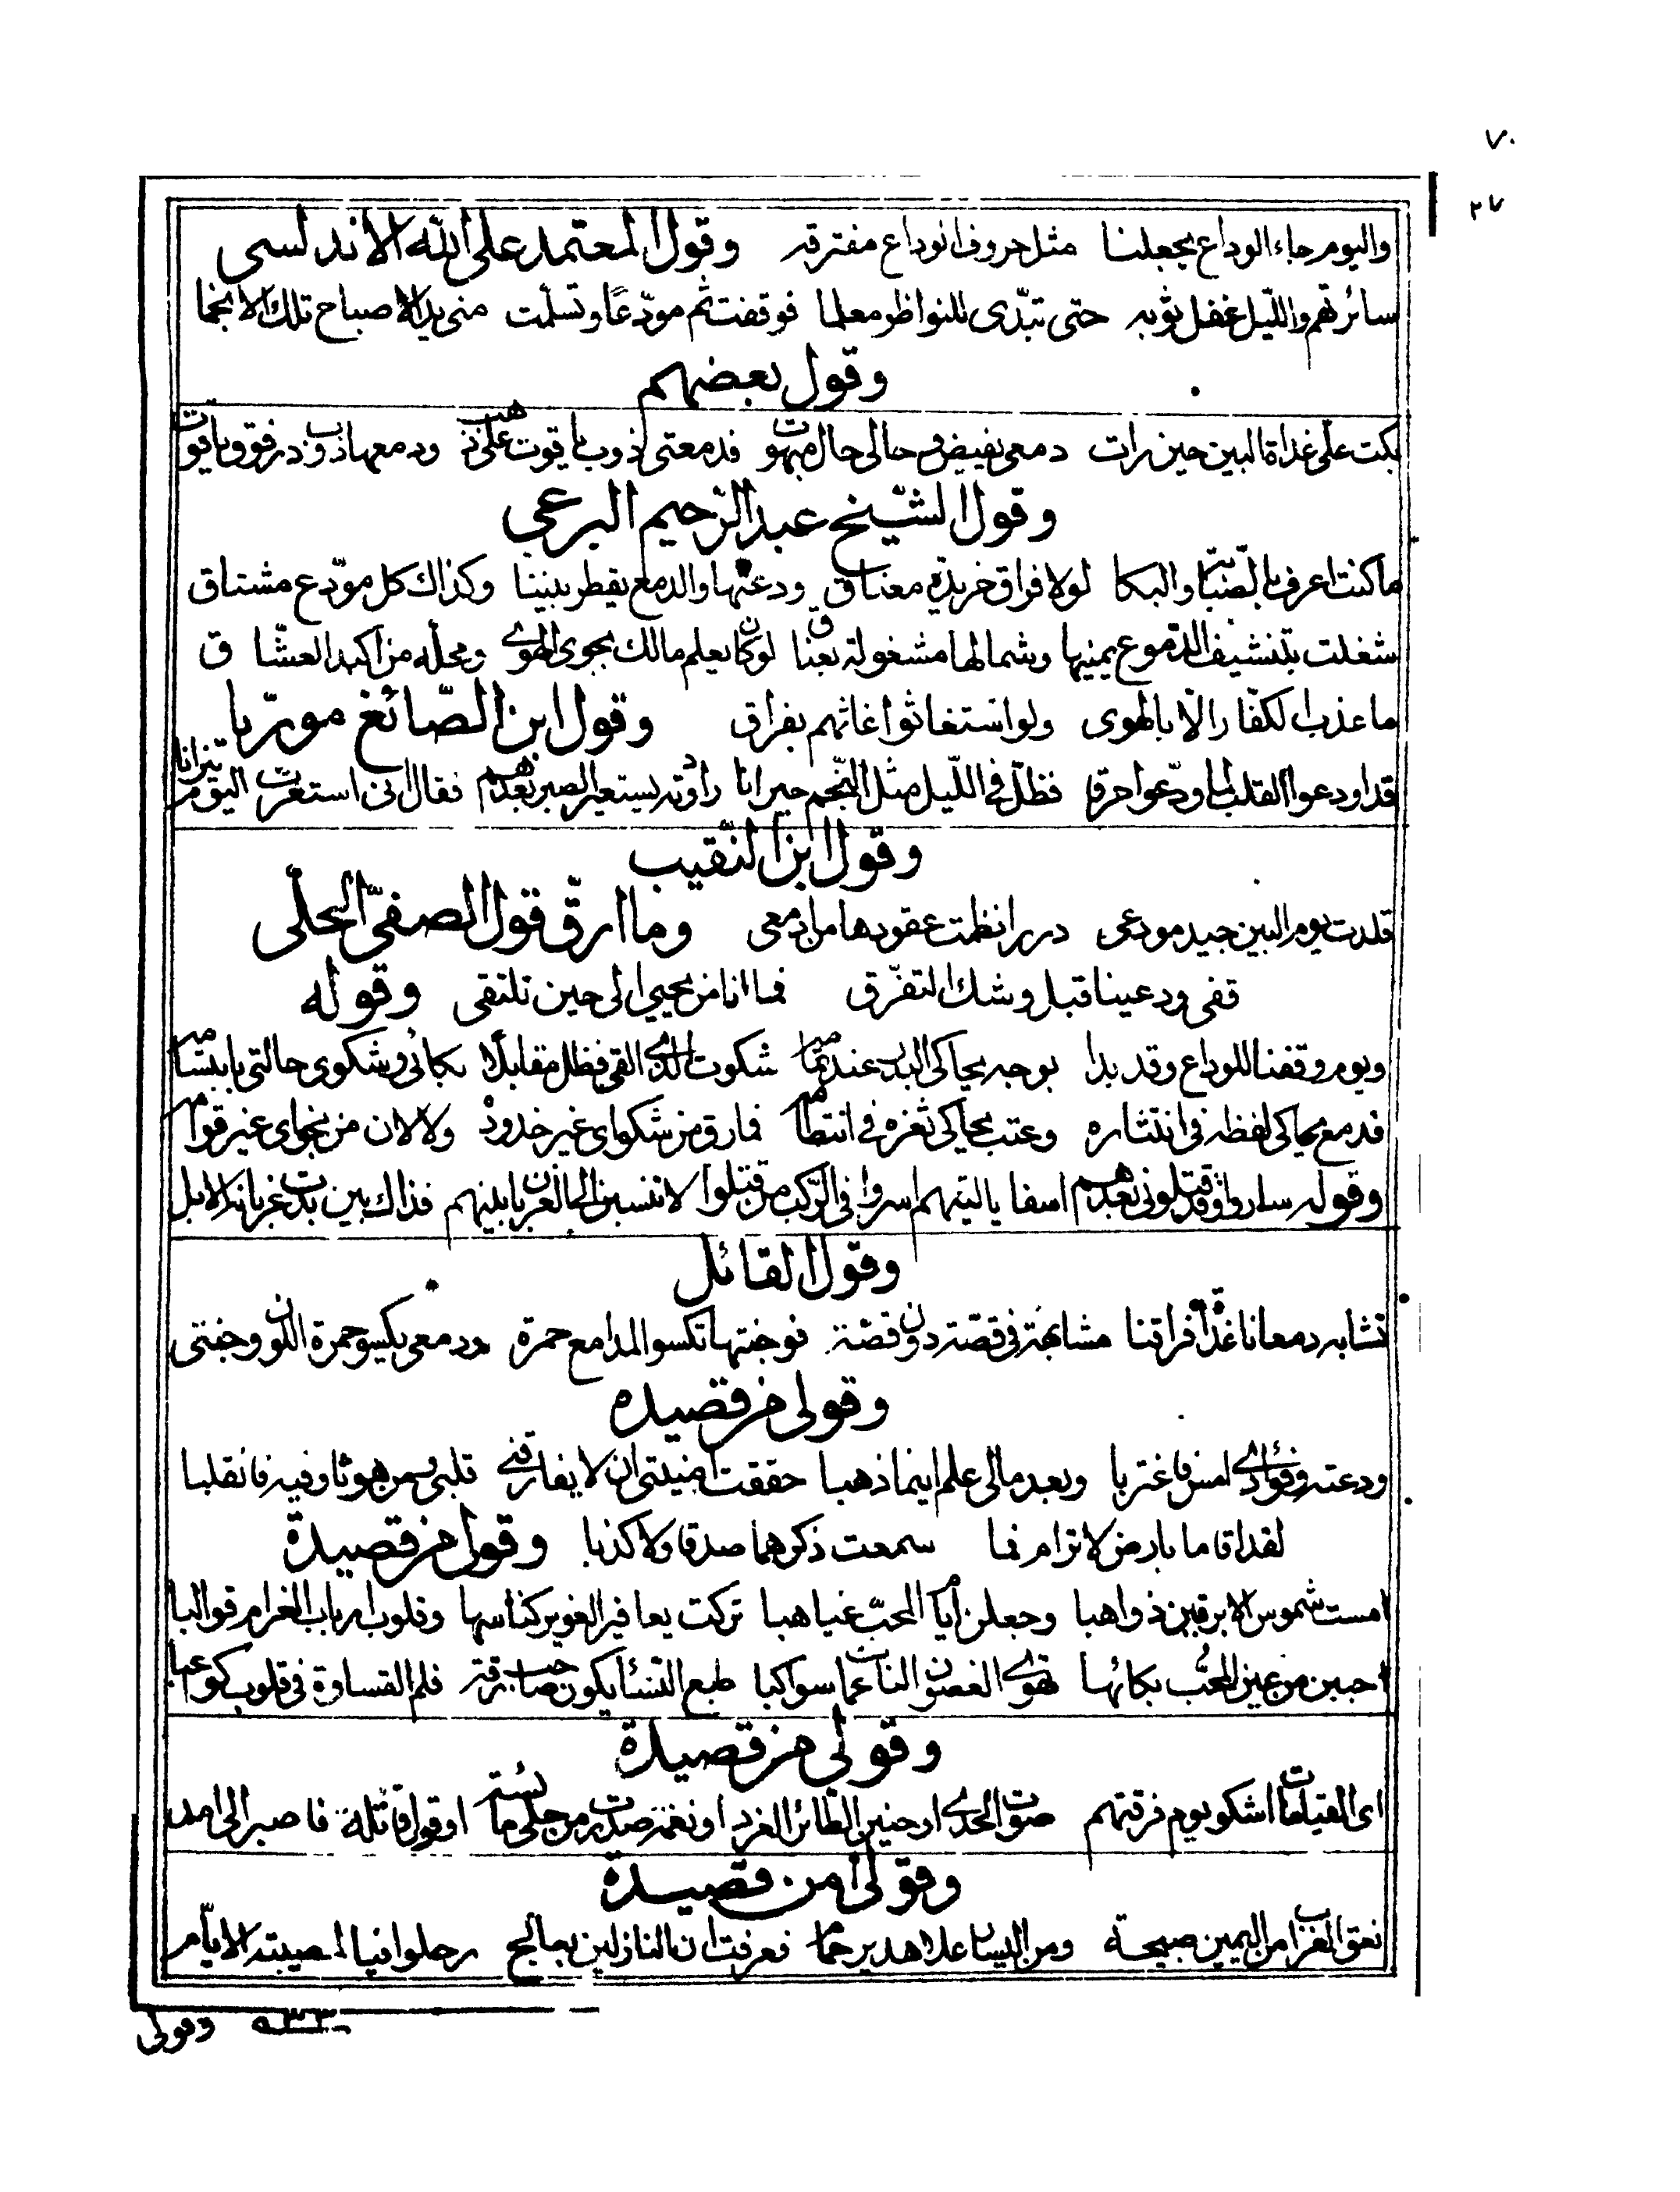 ٧٠
٢٧
واليوم جاء الوداع يجعلنا مثل حروف الوداع مفترقه وقول المعتمد على الله الاندلسى
سائرتهم والليل غفل ثوبه حتى تبدّى للنواظر معلما فوقفت ثم مودّعًا وتسلمت منى يد الاصباح تلك الانجما
وقول بعضهم
بكت علىّ غداة البين حين رات دمعى يفيض وحالى حال مبهوت فدمعتى ذوب ياقوت على ذهب ودمعها ذوب در فوق ياقوت
وقول الشيخ عبد الرحيم البرعى
ما كنت اعرف بالصبابة والبكا لولا فراق خريدة معناق ودعتها والدمع يقطر بيننا وكذاك كل مودّع مشتاق
شغلت بتنشيف الدموع يمينها وشمالها مشغولة بعناق لو كان يعلم مالك بجوى الهوى ومحله من اكبد العشّاق
ما عذب الكفّار الّا بالهوى ولو استغاثوا غاثهم بفراق وقول ابن الصّائغ مورّيا
قد اودعوا القلب لما ودّعوا حرقا فظلّ فى اللّيل مثل النّجم حيرانا راودته يستعير الصبر بعدهم فقال انى استعرت اليوم نيرانا
وقول ابن النّقيب
قلدت يوم البين جيد مودعى دررا نظمت عقودها من ادمعى وما ارقّ قول الصفىّ الحلّى
قفى ودعينا قبل وشك التفرّق فما انا من يحيى الى حين نلتقى وقوله
ويوم وقفنا للوداع وقد بدا بوجه يحاكى البدر عند تمامه شكوت الذى القى فظل مقابلا بكائى وشكوى حالتى بابتسامه
فدمع يحاكى لفظه فى انتثاره وعتب يحاكى ثغره فى انتظامه فما رق من شكواى غير خدوده ولا لان من نجواى غير قوامه
وقوله ساروا وقد قتلونى بعدهم اسفا يا ليتهم اسروا فى الركب من قتلوا لا تنسبن الى الغربان بينهم فذاك بين بدت غربانه الابل
وقول القائل
تشابه دمعانا غداة فراقنا مشابهة فى قصّة دون قصّة فوجنتها تكسو المدامع حمرة ودمعى يكسو حمرة اللون وجنتى
وقولى من قصيده
ودعته وفؤادى امس فاغتربا وبعد مالى علم اينما ذهبا حققت امنيتى ان لا يفارقنى قلبى ومن هو ثاو فيه فانقلبا
لقد اقاما بارض لا ترام فما سمعت ذكرهما صدقا ولا كذبا وقولى من قصيدة
امست شموس الابرقين ذواهبا وجعلن ايام المحبّ غياهبا تركت يعافير الغوير كناسها وقلوب ارباب الغرام قوالبا
وقولى من قصيدة
اى المقيلات اشكو يوم فرقتهم صوت الحدى او حنين الطائر الغرد او نغمة صدرت من حلى مائسة او قول قائلة فاصبر الى امد
وقولى من قصيدة
نعق الغراب من اليمين صبيحة ومن اليسار علا هدير حمام فعرفت ان النازلين بعالج رحلوا فيا لمصيبة الايّام
وقولى